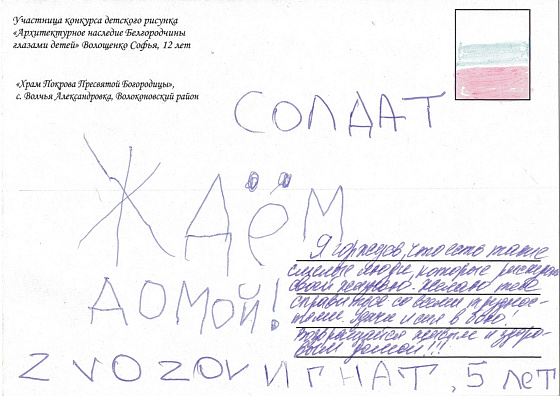 Участница конкурса детского рисунка
«Архитектурное наследие Белгородчины
глазами детей» Волощенко Софья, 12 лет
«Храм Покрова Пресвятой Богородицы»,
с. Волчья Александровка, Волоконовский район
СОЛДАТ
ЖДЁМ
ДОМОЙ!
Я горжусь, что есть такие
смелые люди, которые рискуют
своей жизнью. Желаю тебе
справиться со всеми трудно-
стями. Удачи и сил в бою!
Возвращайся целым и здоро-
вым домой!!!
ZVOZOV ИГНАТ, 5 лет